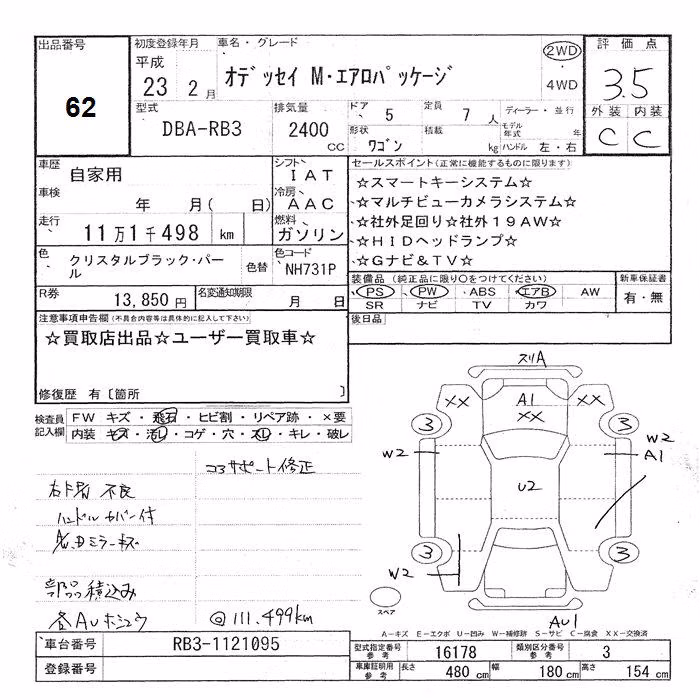 出品番号
62
初度登録年月
平成
23 2月
車名・グレード
オデッセイ M・エアロパッケージ
2WD
4WD
評価点
3.5
外装 内装
C C
型式
DBA-RB3
排気量
2400
CC
ドア 5
形状 ワゴン
定員 7 人
積載 kg
ディーラー・並行
モデル年式 年
ハンドル 左・右
車歴
自家用
シフト
IAT
車検
年 月( 日)
冷房
AAC
走行
11万1千498 km
燃料
ガソリン
色
クリスタルブラック・パール
色替
色コード
NH731P
R券
13,850円
名変通知期限
月 日
セールスポイント(正常に機能するものに限ります)
☆スマートキーシステム☆
☆マルチビューカメラシステム☆
☆社外足回り☆社外19AW☆
☆HIDヘッドランプ☆
☆Gナビ&TV☆
装備品 (純正品に限り○をつけてください)
PS PW ABS エアB AW
SR ナビ TV カワ
新車保証書
有・無
後日品
注意事項申告欄(不具合内容等は具体的に記入して下さい)
☆買取店出品☆ユーザー買取車☆
修復歴 有〔箇所 〕
検査員
記入欄
FW キズ・飛石・ヒビ割・リペア跡・×要
内装 キズ・汚レ・コゲ・穴・スレ・キレ・破レ
コアサポート修正
不良
ハンドルカバー付
部品積込み
@111.499km
スリA
XX
A1
XX
XX
3
3
W2
W2
A1
U2
3
3
W2
スペア
AU1
A-キズ E-エクボ U-凹み W-補修跡 S-サビ C-腐食 XX-交換済
車台番号
RB3-1121095
登録番号
型式指定番号
参考
16178
類別区分番号
参考
3
車庫証明用
参考
長さ 480 cm 幅 180 cm 高さ 154 cm